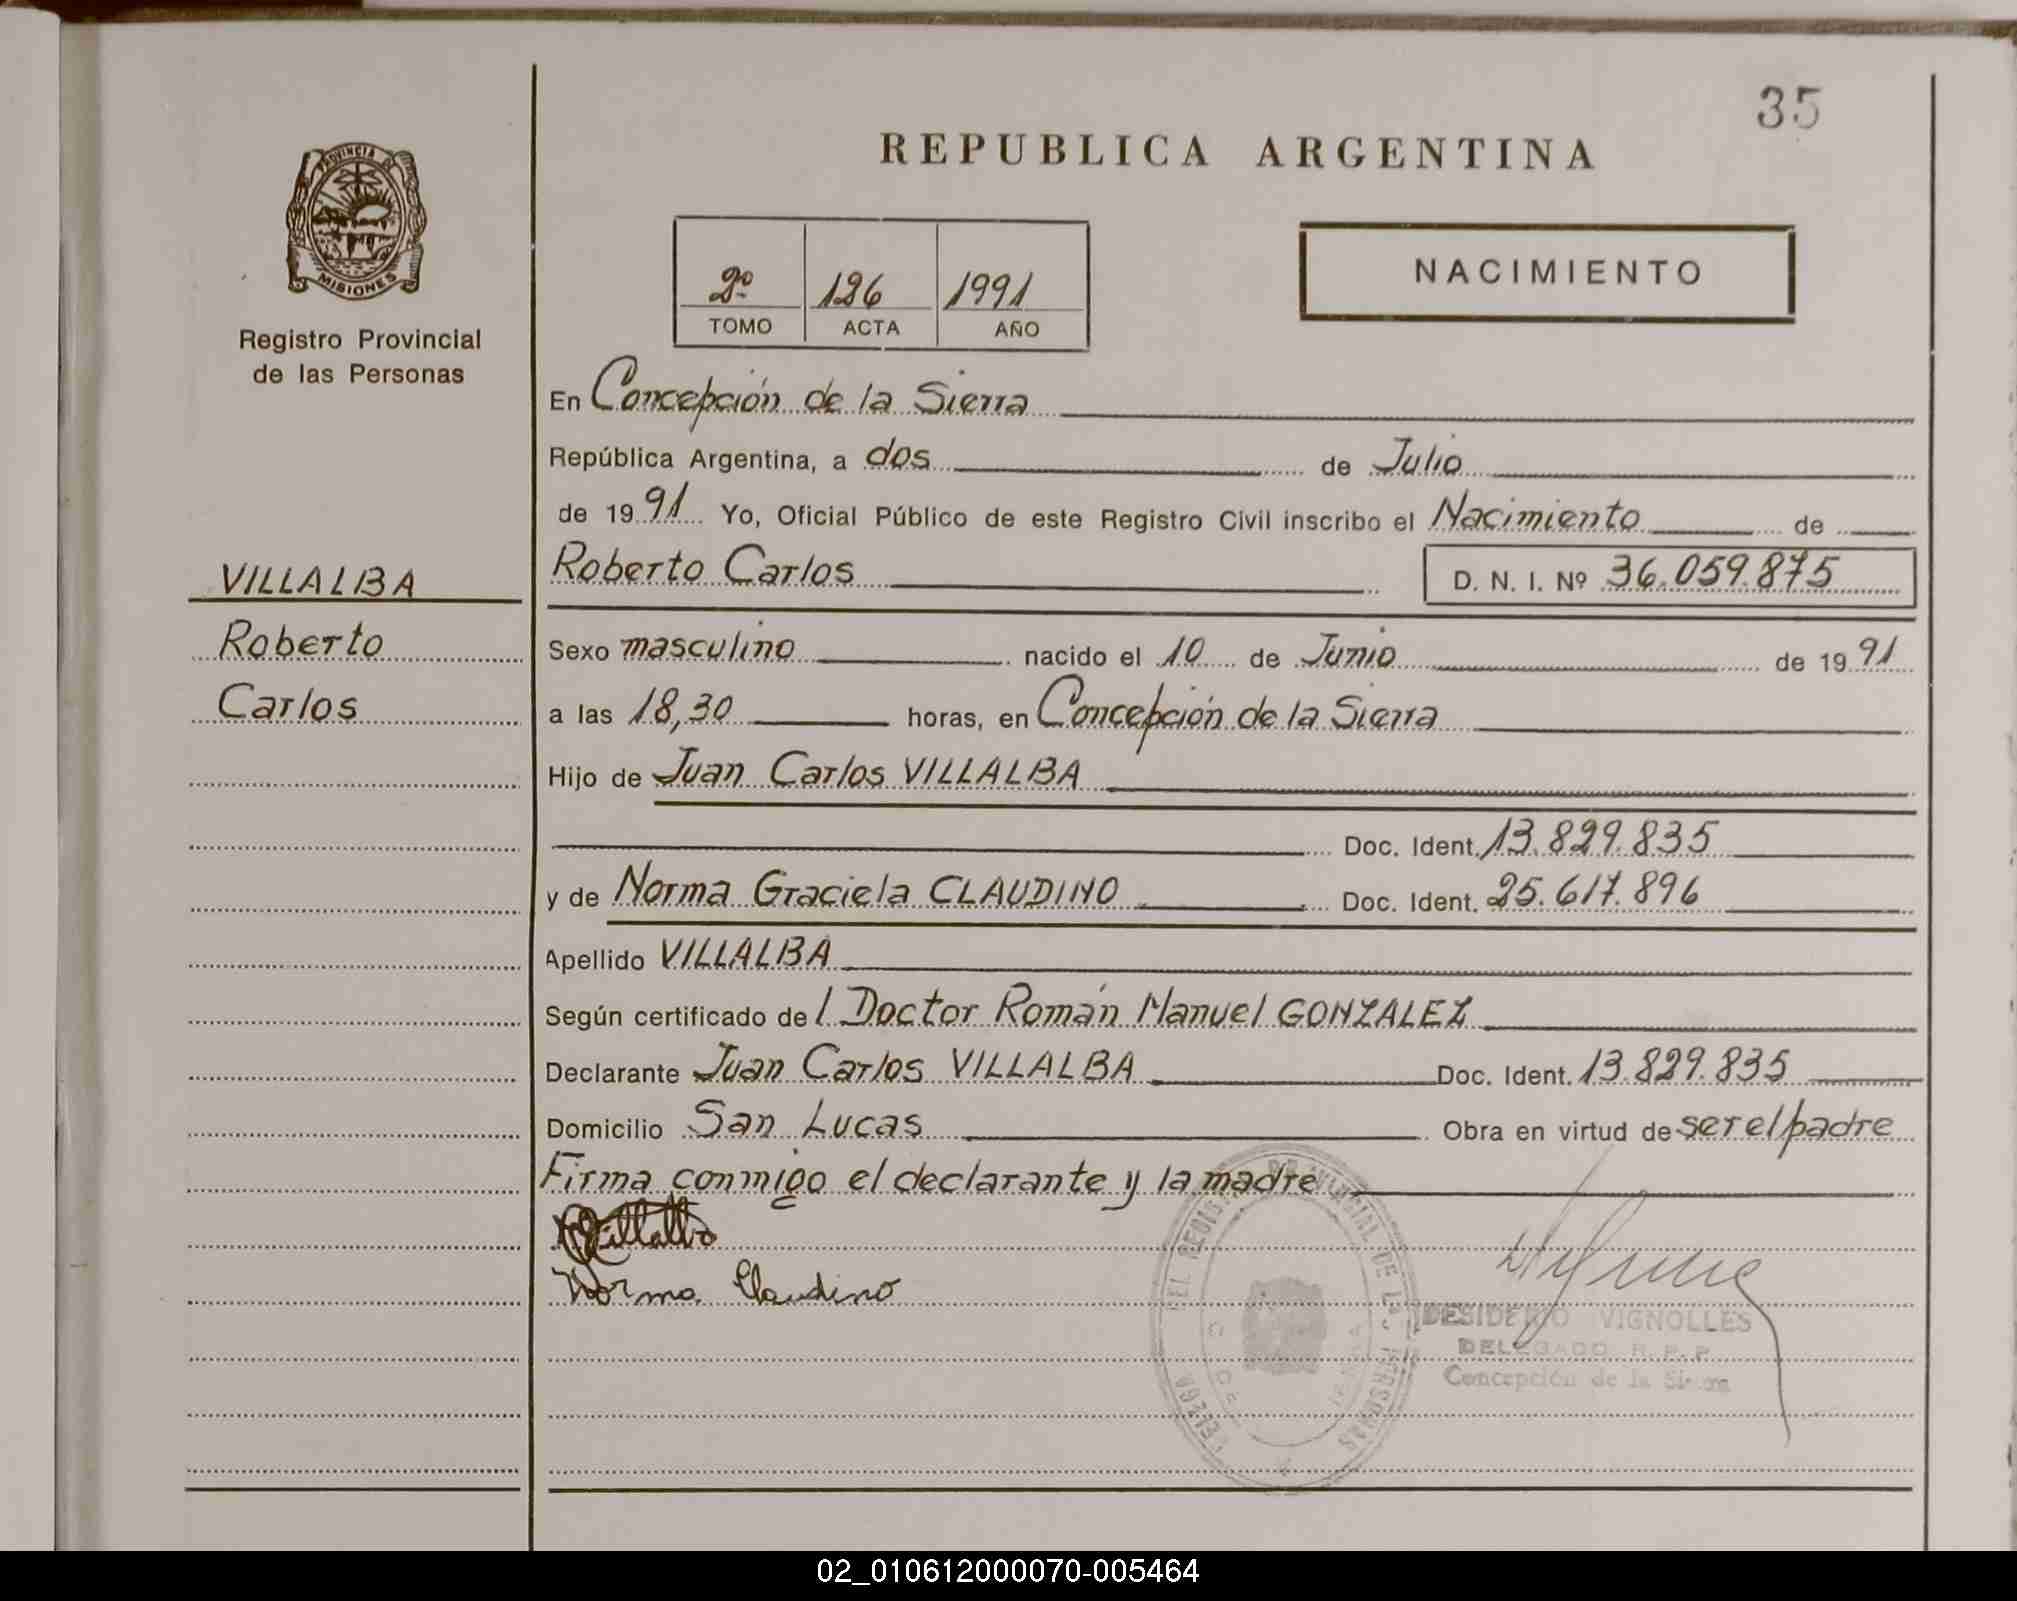 35
REPUBLICA ARGENTINA
PROVINCIA DE
MISIONES
Registro Provincial
de las Personas
2º 126 1991
TOMO ACTA AÑO
NACIMIENTO
En Concepción de la Sierra
República Argentina, a dos de Julio
de 1991 Yo, Oficial Público de este Registro Civil inscribo el Nacimiento de
VILLALBA
Roberto
Carlos
Roberto Carlos D. N. I. Nº 36.059.875
Sexo masculino nacido el 10 de Junio de 1991
a las 18,30 horas, en Concepción de la Sierra
Hijo de Juan Carlos VILLALBA
Doc. Ident. 13.829.835
y de Norma Graciela CLAUDINO Doc. Ident. 25.617.896
Apellido VILLALBA
Según certificado del Doctor Román Manuel GONZALEZ
Declarante Juan Carlos VILLALBA Doc. Ident. 13.829.835
Domicilio San Lucas Obra en virtud de ser el padre
Firma conmigo el declarante y la madre
Villalba
Norma Claudino
DESIDERIO VIGNOLLES
DELEGADO R. P. P.
Concepción de la Sierra
02_010612000070-005464